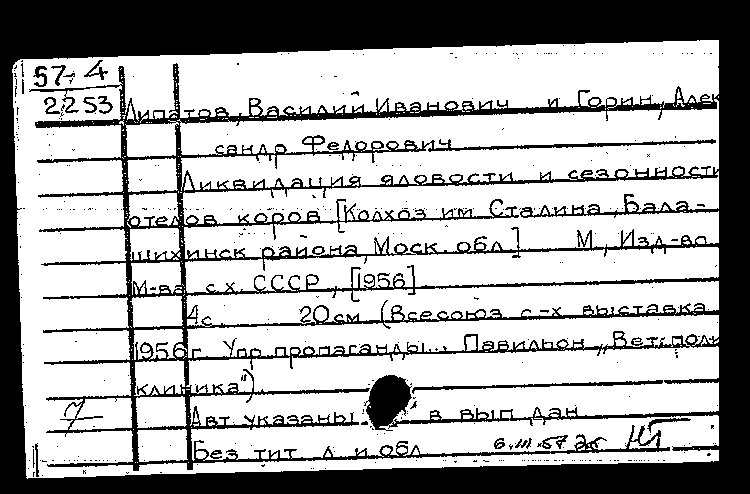 57-4
2253
Липатов, Василий Иванович и Горин, Алек
сандр Федорович
Ликвидация яловости и сезонности
отелов коров [Колхоз им Сталина, Бала-
шихинск района, Моск. обл] М, Изд-во
М-ва с.х. СССР, [1956]
4с 20см (Всесоюз с-х выставка
1956г Упр пропаганды... Павильон „Вет.поли
клиника")
Авт указаны в вып дан
Без тит л и обл 6.III.57